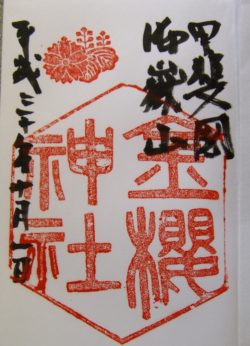 甲斐国
御嶽山
金櫻
神社
平成三十年十月一日